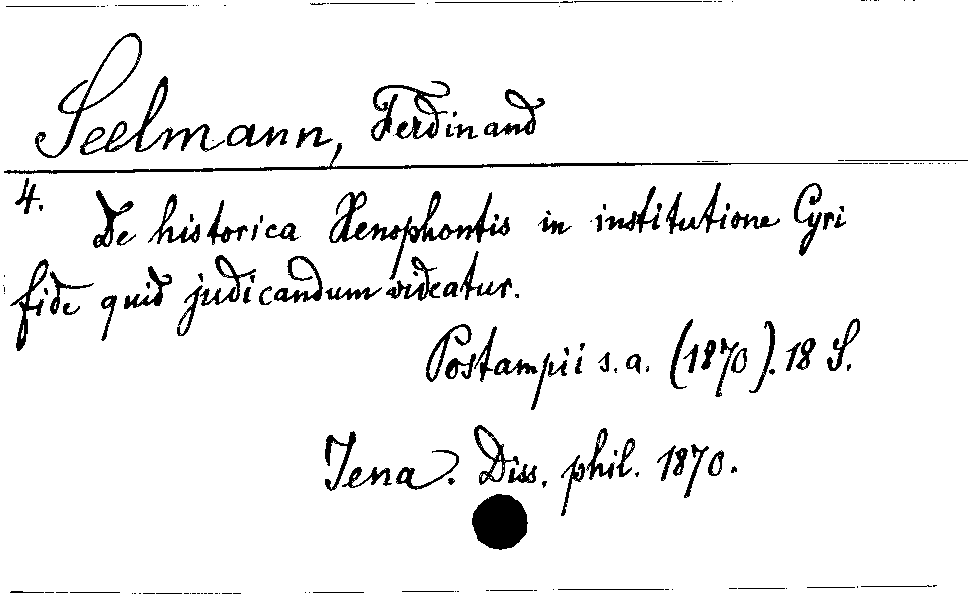 Seelmann, Ferdinand
4.
De historica Xenophontis in institutione Cyri
fide quid judicandum videatur.
Postampii s. a. (1870). 18 S.
Jena. Diss. phil. 1870.